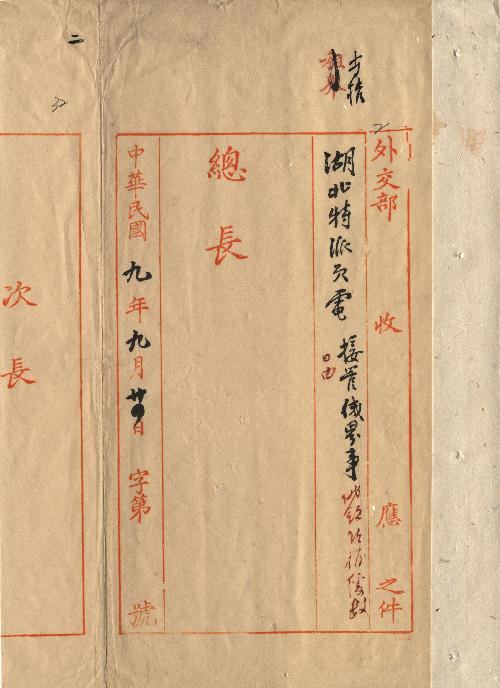 二
外交部收應之件
湖北特派員電 接管俄界事
日由
總長
中華民國九年九月廿日字第號
次長